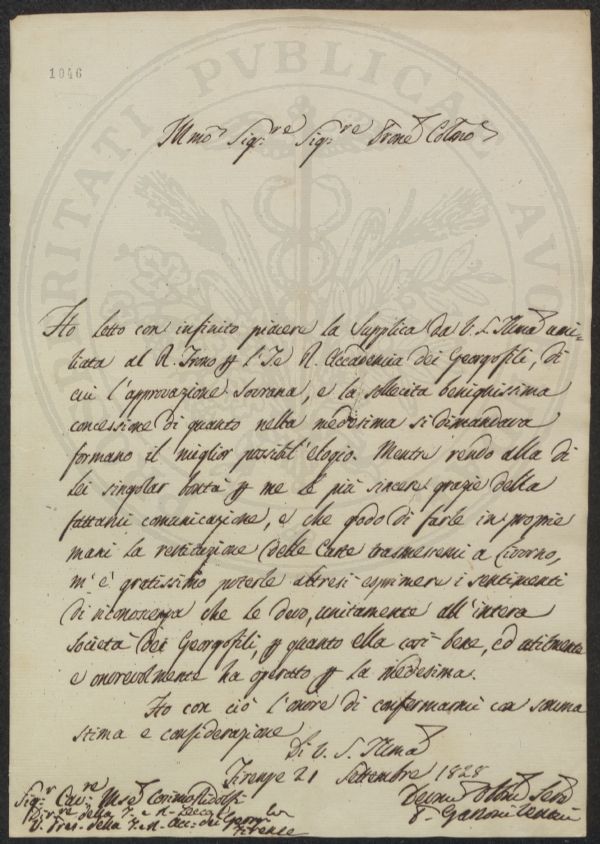 1046
PVBLICAE
Illmo Sigre Sigre Prone Colmo
Ho letto con infinito piacere la Supplica da V. S. Illma umi-
liata al R. Trono p l'I e R. Accademia dei Georgofili, di
cui l'approvazione Sovrana, e la sollecita benignissima
concessione di quanto nella medesima si dimandava
formano il miglior possibil'elogio. Mentre rendo alla di
Lei singolar bontà p me le più sincere grazie della
fattami comunicazione, e che godo di farle in proprie
mani la restituzione delle Carte trasmessemi a Livorno,
m'è gratissimo poterle altresì esprimere i sentimenti
di riconoscenza che le devo, unitamente all'intera
Società dei Georgofili, p quanto ella così bene, ed utilmente
e onorevolmente ha operato p la medesima.
Ho con ciò l'onore di confermarmi con somma
stima e considerazione
Di V. S. Illma
Firenze 21 Settembre 1828
Sigr Cavre Mse Cosimo Ridolfi
Dirre della I. e R. Zecca
V. Pres. della I. e R. Acc. dei Georg.
Firenze